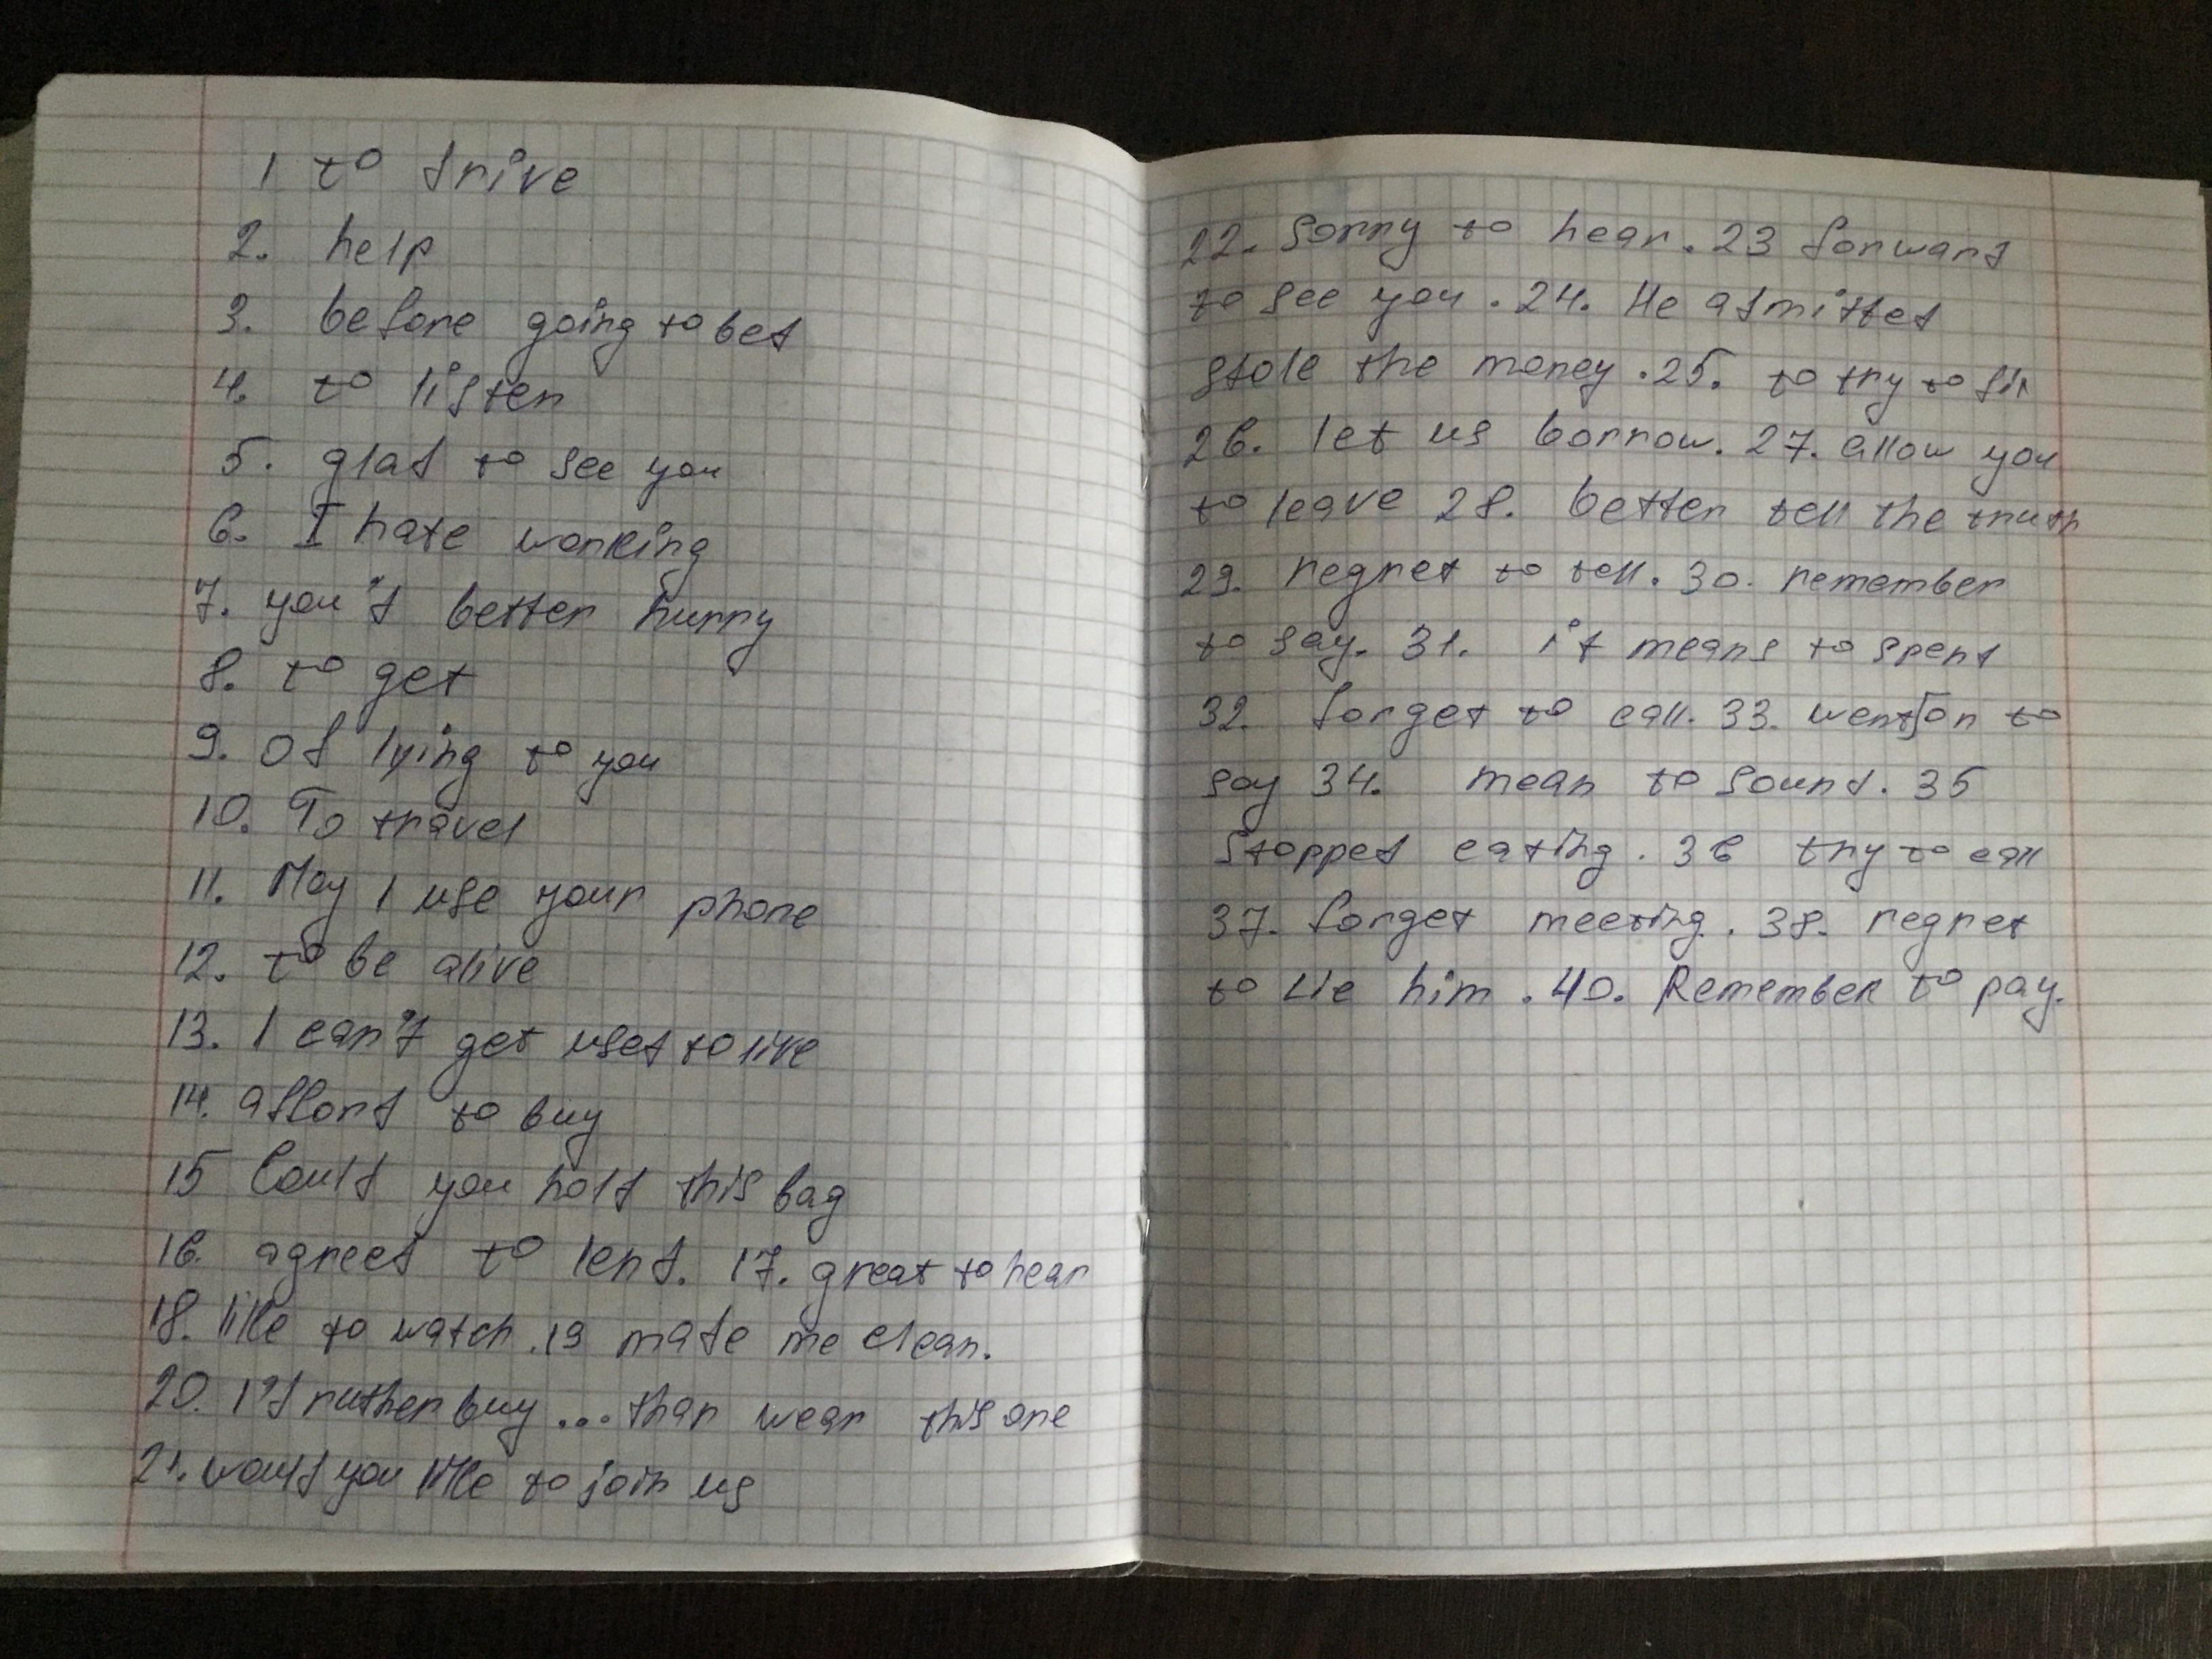 1 to drive
2. help
3. before going to bed
4. to listen
5. glad to see you
6. I hate working
7. you'd better hurry
8. to get
9. Of lying to you
10. To travel
11. May I use your phone
12. to be alive
13. I can't get used to live
14. afford to buy
15 Could you hold this bag
16. agreed to lend. 17. great to hear
18. like to watch. 19 made me clean.
20. I'd ruther buy ... than wear this one
21. would you like to join us
22. Sorry to hear. 23 forward
to see you. 24. He admitted
stole the money. 25. to try to fix
26. let us borrow. 27. allow you
to leave 28. better tell the truth
29. regret to tell. 30. remember
to say. 31. it means to spend
32. forget to call. 33. went on to
say 34. mean to sound. 35
Stopped eating. 36 try to call
37. forget meeting. 38. regret
to Lie him. 40. Remember to pay.